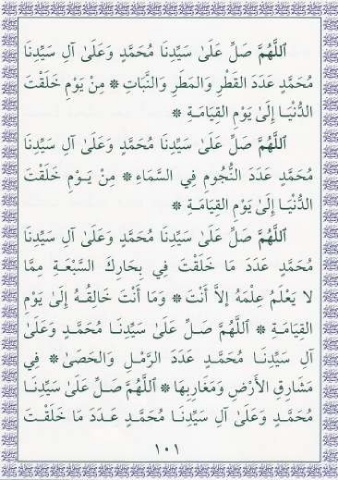 اَللَّهُمَّ صَلِّ عَلَىٰ سَيِّدِنَا مُحَمَّدٍ وَعَلَىٰ آلِ سَيِّدِنَا
مُحَمَّدٍ عَدَدَ القَطْرِ وَالمَطَرِ وَالنَّبَاتِ * مِنْ يَوْمِ خَلَقْتَ
الدُّنْيَا إِلَىٰ يَوْمِ القِيَامَةِ *
اَللَّهُمَّ صَلِّ عَلَىٰ سَيِّدِنَا مُحَمَّدٍ وَعَلَىٰ آلِ سَيِّدِنَا
مُحَمَّدٍ عَدَدَ النُّجُومِ فِي السَّمَاءِ * مِنْ يَوْمِ خَلَقْتَ
الدُّنْيَا إِلَىٰ يَوْمِ القِيَامَةِ *
اَللَّهُمَّ صَلِّ عَلَىٰ سَيِّدِنَا مُحَمَّدٍ وَعَلَىٰ آلِ سَيِّدِنَا
مُحَمَّدٍ عَدَدَ مَا خَلَقْتَ فِي بِحَارِكَ السَّبْعَةِ مِمَّا
لا يَعْلَمُ عِلْمَهُ إِلاَّ أَنْتَ * وَمَا أَنْتَ خَالِقُهُ إِلَىٰ يَوْمِ
القِيَامَةِ * اَللَّهُمَّ صَلِّ عَلَىٰ سَيِّدِنَا مُحَمَّدٍ وَعَلَىٰ
آلِ سَيِّدِنَا مُحَمَّدٍ عَدَدَ الرَّمْلِ وَالحَصَىٰ * فِي
مَشَارِقِ الأَرْضِ وَمَغَارِبِهَا * اَللَّهُمَّ صَلِّ عَلَىٰ سَيِّدِنَا
مُحَمَّدٍ وَعَلَىٰ آلِ سَيِّدِنَا مُحَمَّدٍ عَدَدَ مَا خَلَقْتَ
١٠١